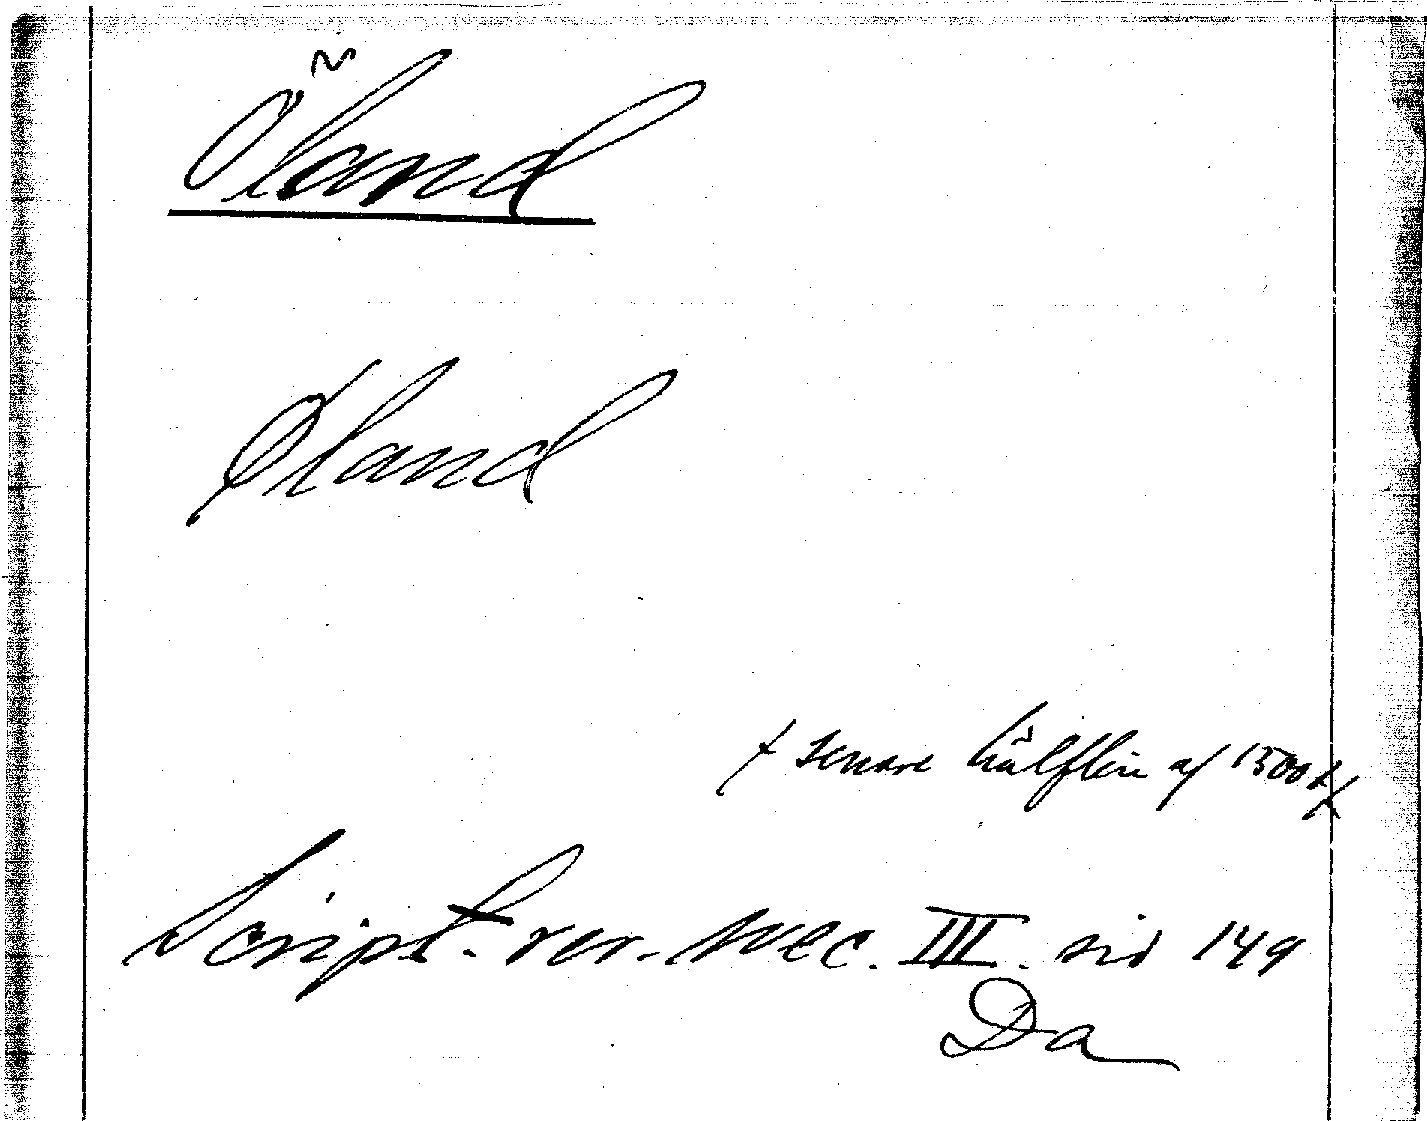 Öland
Øland
f senare hälften af 1500 t/
Script. rer. svec. III. sid 149
Da